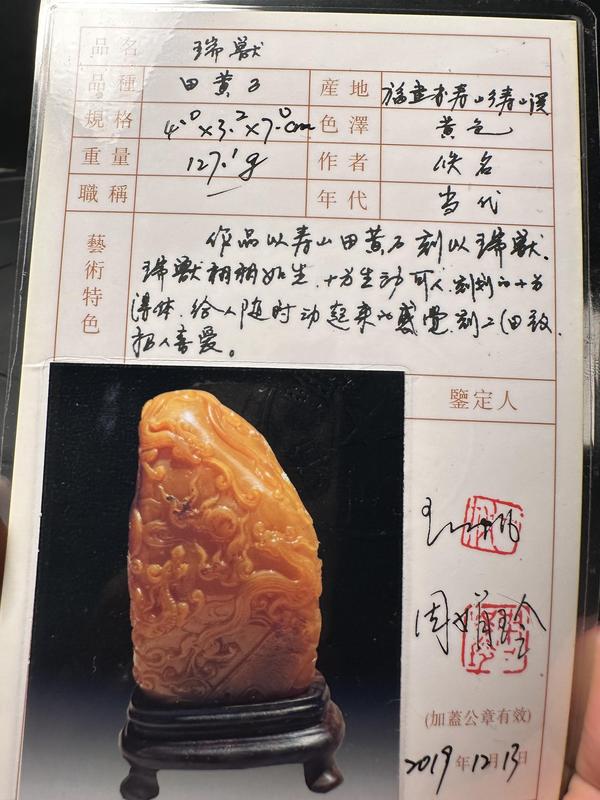 品名 瑞獸
品種 田黄石 產地 福建省寿山寿山溪
規格 4.0×3.2×7.0cm 色澤 黄色
重量 127.1g 作者 佚名
職稱 — 年代 当代
藝術特色
作品以寿山田黄石刻以瑞獸.
瑞獸栩栩如生,十分生动可人,刻划的十分
得体,给人随时动起来的感觉,刻工细致.
招人喜爱。
鑒定人
周
(加蓋公章有效)
2019年12月13日